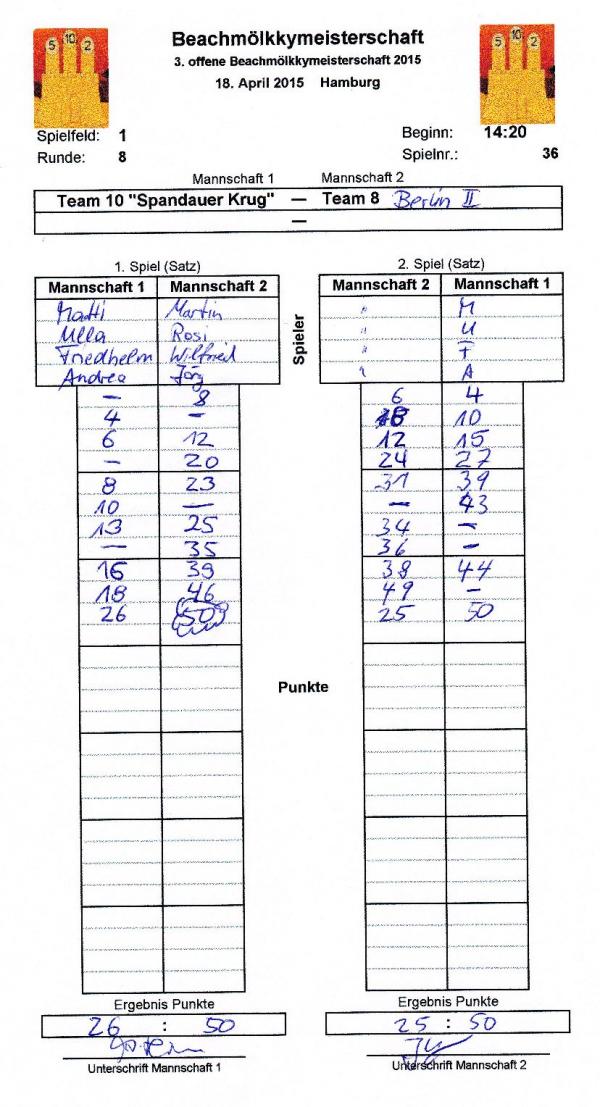 5 10 2
5 10 2
Beachmölkkymeisterschaft
3. offene Beachmölkkymeisterschaft 2015
18. April 2015 Hamburg
Spielfeld: 1
Beginn: 14:20
Runde: 8
Spielnr.: 36
Mannschaft 1 Mannschaft 2
Team 10 "Spandauer Krug" — Team 8 Berlin II
—
1. Spiel (Satz) 2. Spiel (Satz)
Mannschaft 1 Mannschaft 2 Mannschaft 2 Mannschaft 1
Matti Martin " M
Ulla Rosi " U
Friedhelm Wilfried " F
Andrea Jörg " A
Spieler
— 8 6 4
4 — 10
6 12 12 15
— 20 24 27
8 23 31 39
10 — — 43
13 25 34 —
— 35 36 —
16 39 38 44
18 46 49 —
26 (50) 25 50
Punkte
Ergebnis Punkte Ergebnis Punkte
26 : 50 25 : 50
Unterschrift Mannschaft 1 Unterschrift Mannschaft 2